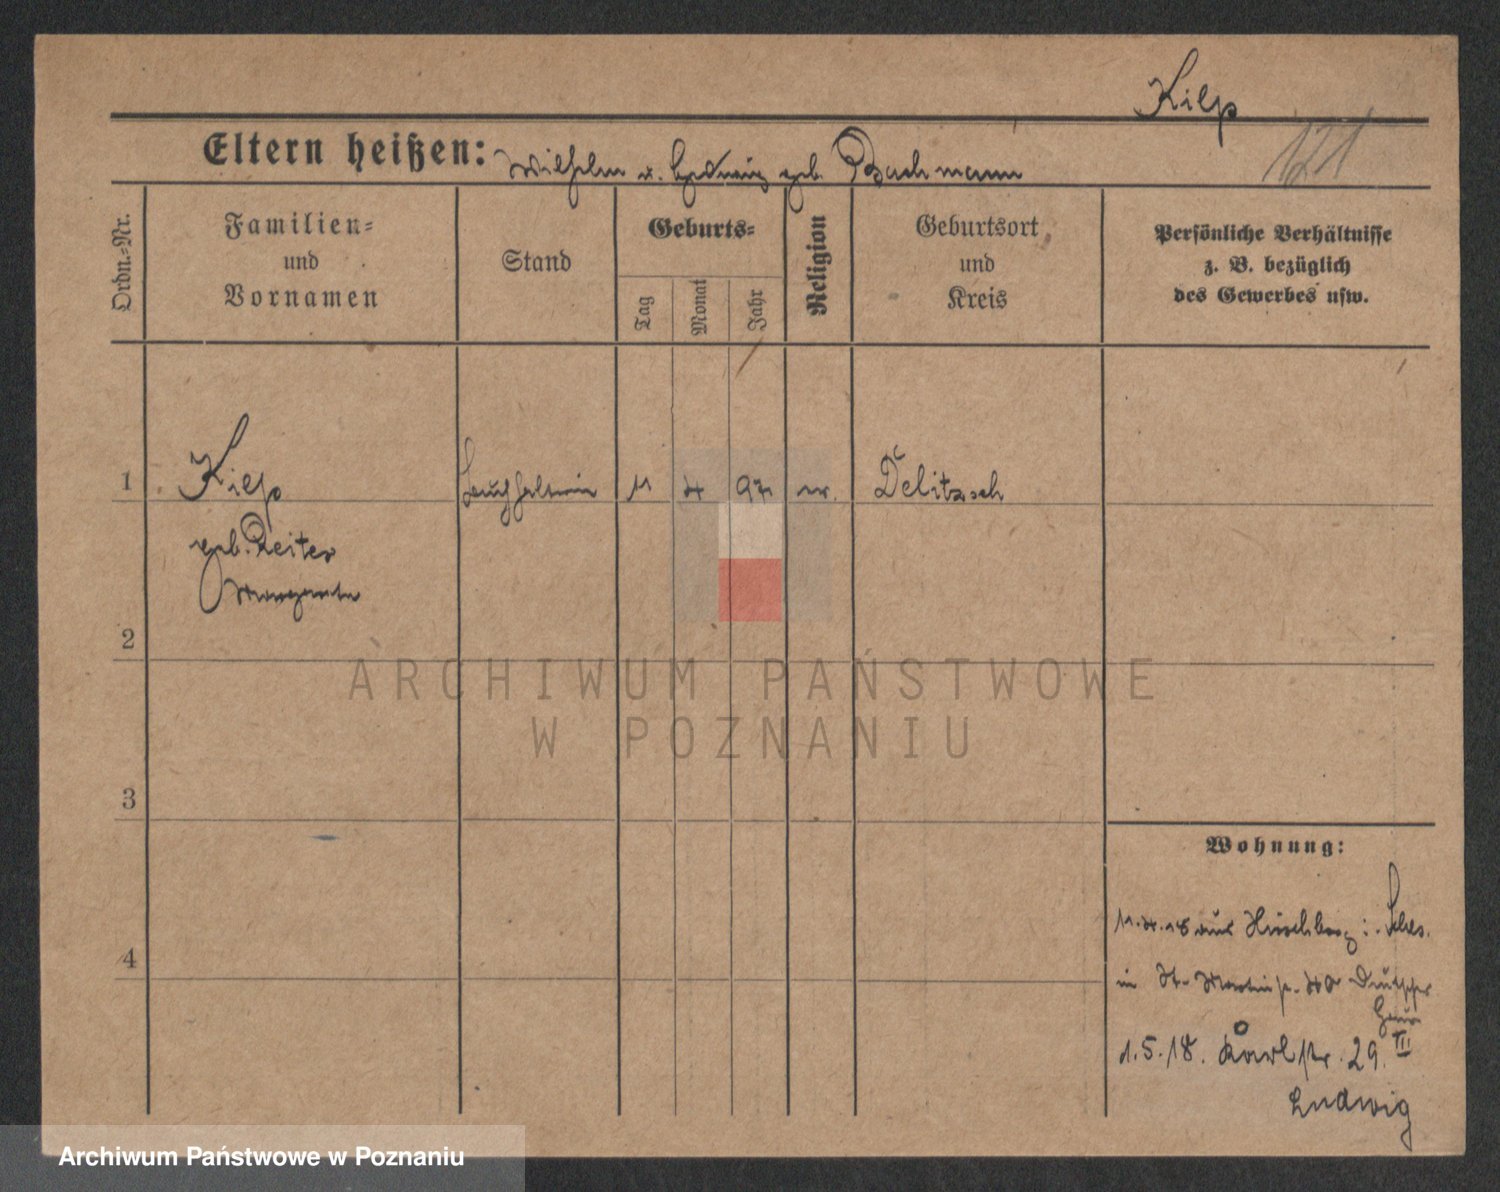 Kilp
Eltern heißen: Wilhelm u. Hedwig geb. Bachmann
121
Ordn.-Nr.
Familien-
und
Vornamen
Stand
Geburts-
Tag
Monat
Jahr
Religion
Geburtsort
und
Kreis
Persönliche Verhältnisse
z. B. bezüglich
des Gewerbes usw.
1
Kilp
geb. Reiter
Margarete
Buchhalterin
11
4
97
ev.
Delitzsch
2
ARCHIWUM PAŃSTWOWE
W POZNANIU
3
4
Wohnung:
11.4.18 aus Hirschberg i. Schles.
in St. Martinstr. 40 Deutsches
Haus
1.5.18. Karlstr. 29. III
Ludwig
Archiwum Państwowe w Poznaniu